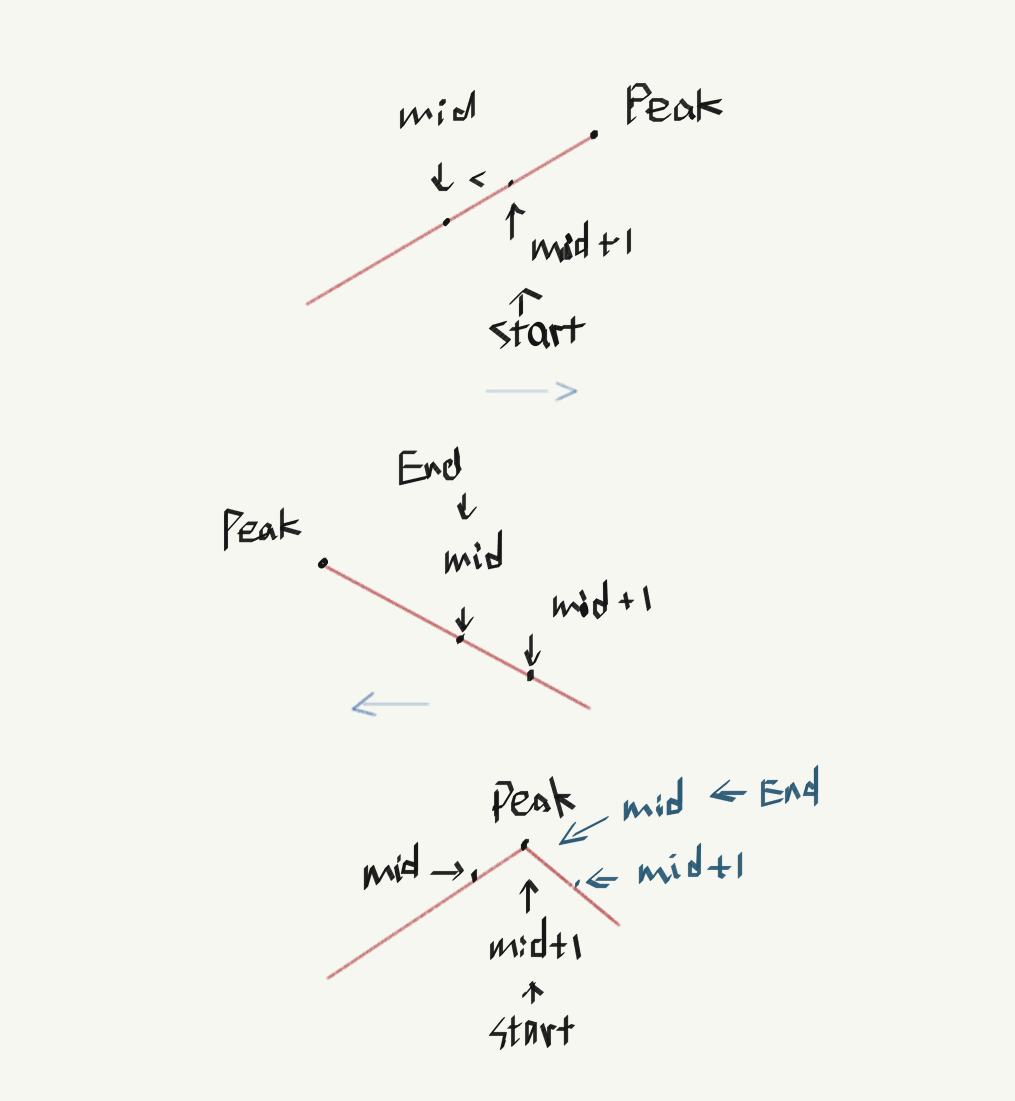 mid
Peak
<
mid+1
start
End
Peak
mid
mid+1
Peak
mid
End
mid
mid+1
mid+1
start